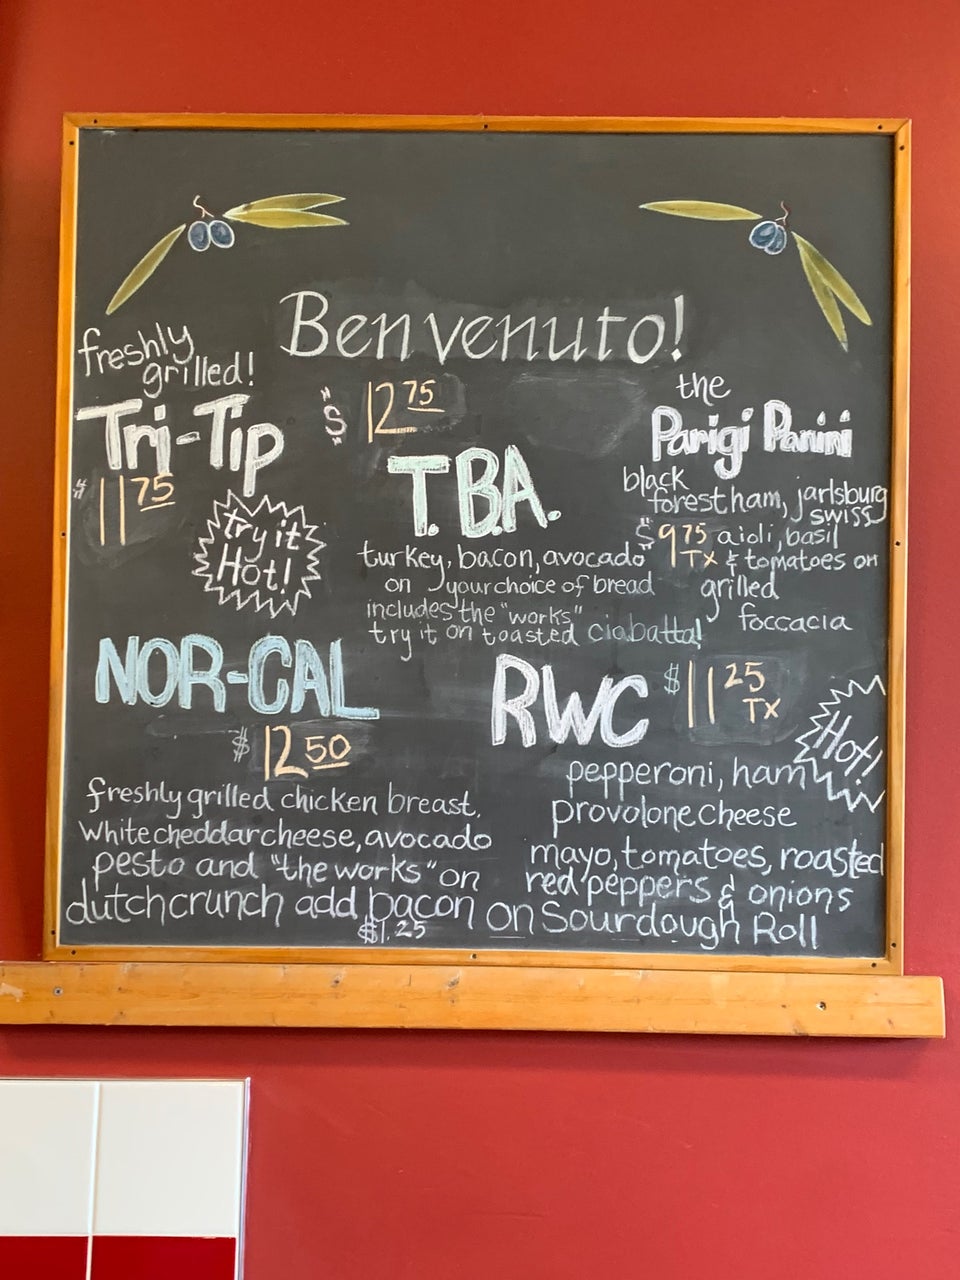 Benvenuto!
freshly
grilled!
Tri-Tip
$ 11 75
try it
Hot!
$ 12 75
T.B.A.
turkey, bacon, avocado
on your choice of bread
includes the "works"
try it on toasted ciabatta!
the
Parigi Panini
black
forest ham, jarlsburg
swiss
$ 9 75 aioli, basil
Tx & tomatoes on
grilled
foccacia
NOR-CAL
$ 12 50
freshly grilled chicken breast,
white cheddar cheese, avocado
pesto and "the works" on
dutchcrunch add bacon
$1.25
RWC $ 11 25
Tx
Hot!
pepperoni, ham
provolone cheese
mayo, tomatoes, roasted
red peppers & onions
on Sourdough Roll